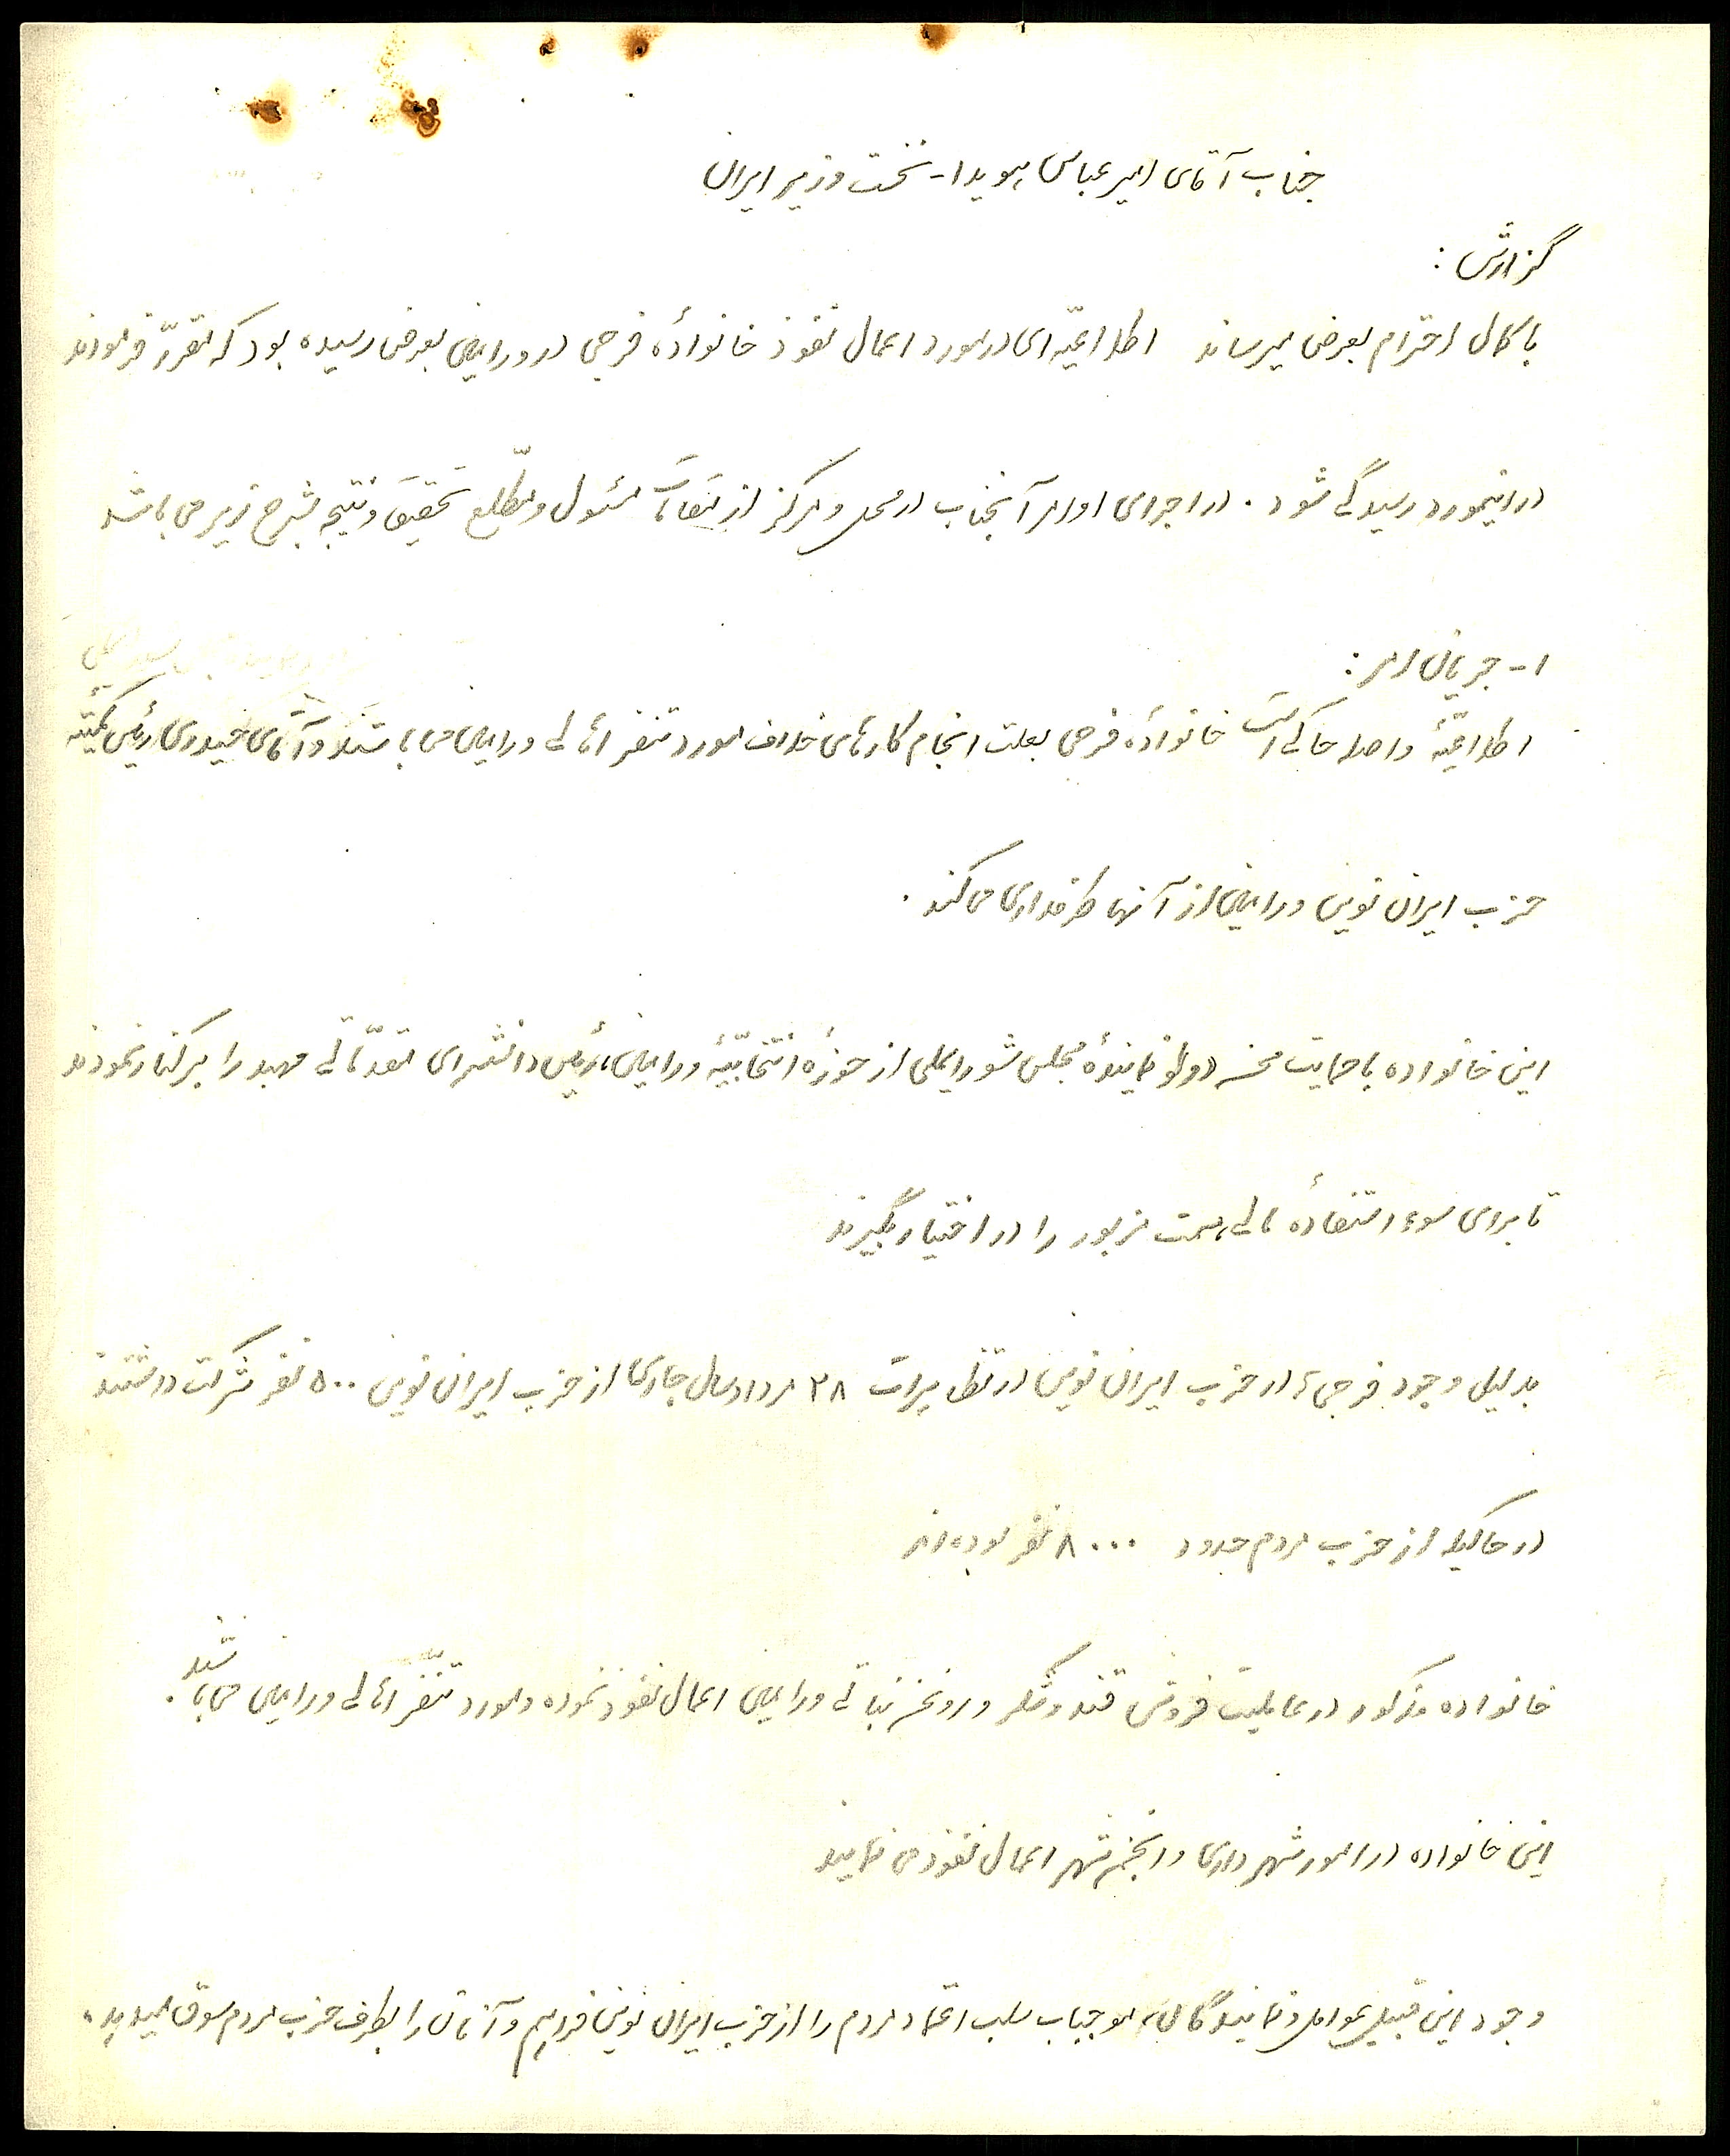 جناب آقای امیرعباس هویدا - نخست وزیر ایران
گزارش :
با کمال احترام بعرض میرساند اطلاعیه‌ای در مورد اعمال نفوذ خانوادهٔ فرجی در ورامین بعرض رسیده بود که مقرر فرمودند
در اینمورد رسیدگی شود . در اجرای اوامر آنجناب در محل و مرکز از مقامات مسئول و مطلع تحقیق و نتیجه بشرح زیر می باشد
۱- جریان امر :
اطلاعیهٔ واصله حاکی است خانوادهٔ فرجی بعلت انجام کارهای خلاف مورد تنفر اهالی ورامین می باشند و آقای حیدری رئیس کمیتهٔ
حزب ایران نوین ورامین از آنها طرفداری می کند .
این خانواده با حمایت محسن دولو نمایندهٔ مجلس شورایملی از حوزهٔ انتخابیهٔ ورامین، رئیس دانشسرای مقدماتی مهبد را برکنار نمودند
تا برای سوء استفادهٔ مالی، سمت مزبور را در اختیار بگیرند
بدلیل وجود فرجی، در حزب ایران نوین در تظاهرات ۲۸ مرداد سال جاری از حزب ایران نوین ۵۰۰ نفر شرکت داشتند
در حالیکه از حزب مردم حدود ۸۰۰۰ نفر بوده‌اند
خانواده مذکور در عاملیت فروش قند و شکر و روغن نباتی ورامین اعمال نفوذ نموده و مورد تنفر اهالی ورامین می باشند .
این خانواده در امور شهرداری و انجمن شهر اعمال نفوذ می نمایند
وجود این قبیل عوامل و نمایندگان، موجبات سلب اعتماد مردم را از حزب ایران نوین فراهم و آنان را بطرف حزب مردم سوق میدهد .